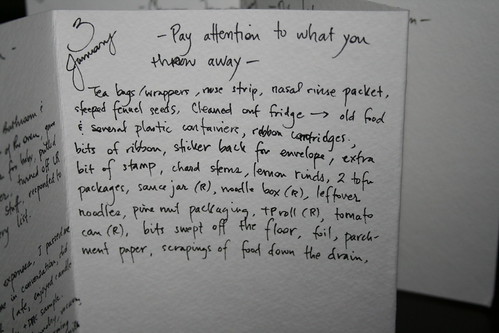 3
January
- Pay attention to what you
thrown away -
Tea bags/wrappers, nose strip, nasal rinse packet,
steeped fennel seeds, Cleaned out fridge → old food
& several plastic containers, ribbon cartridges,
bits of ribbon, sticker back for envelope, extra
bit of stamp, chard stems, lemon rinds, 2 tofu
packages, sauce jar (R), noodle box (R), leftover
noodles, pine nut packaging, tproll (R), tomato
can (R), bits swept off the floor, foil, parch-
ment paper, scrapings of food down the drain,
of the oven, gave
turned off
stuff, responded to
list.
expenses, I
in conversation,
late, enjoyed
sample.